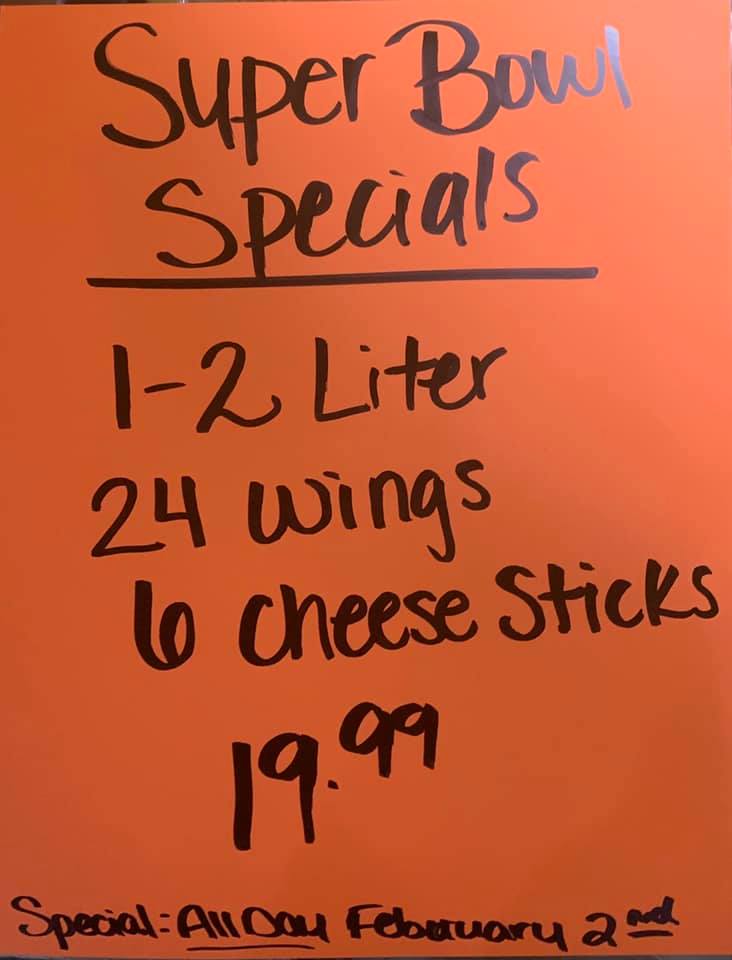 Super Bowl
Specials
1-2 Liter
24 wings
6 cheese Sticks
19.99
Special: All Day February 2nd